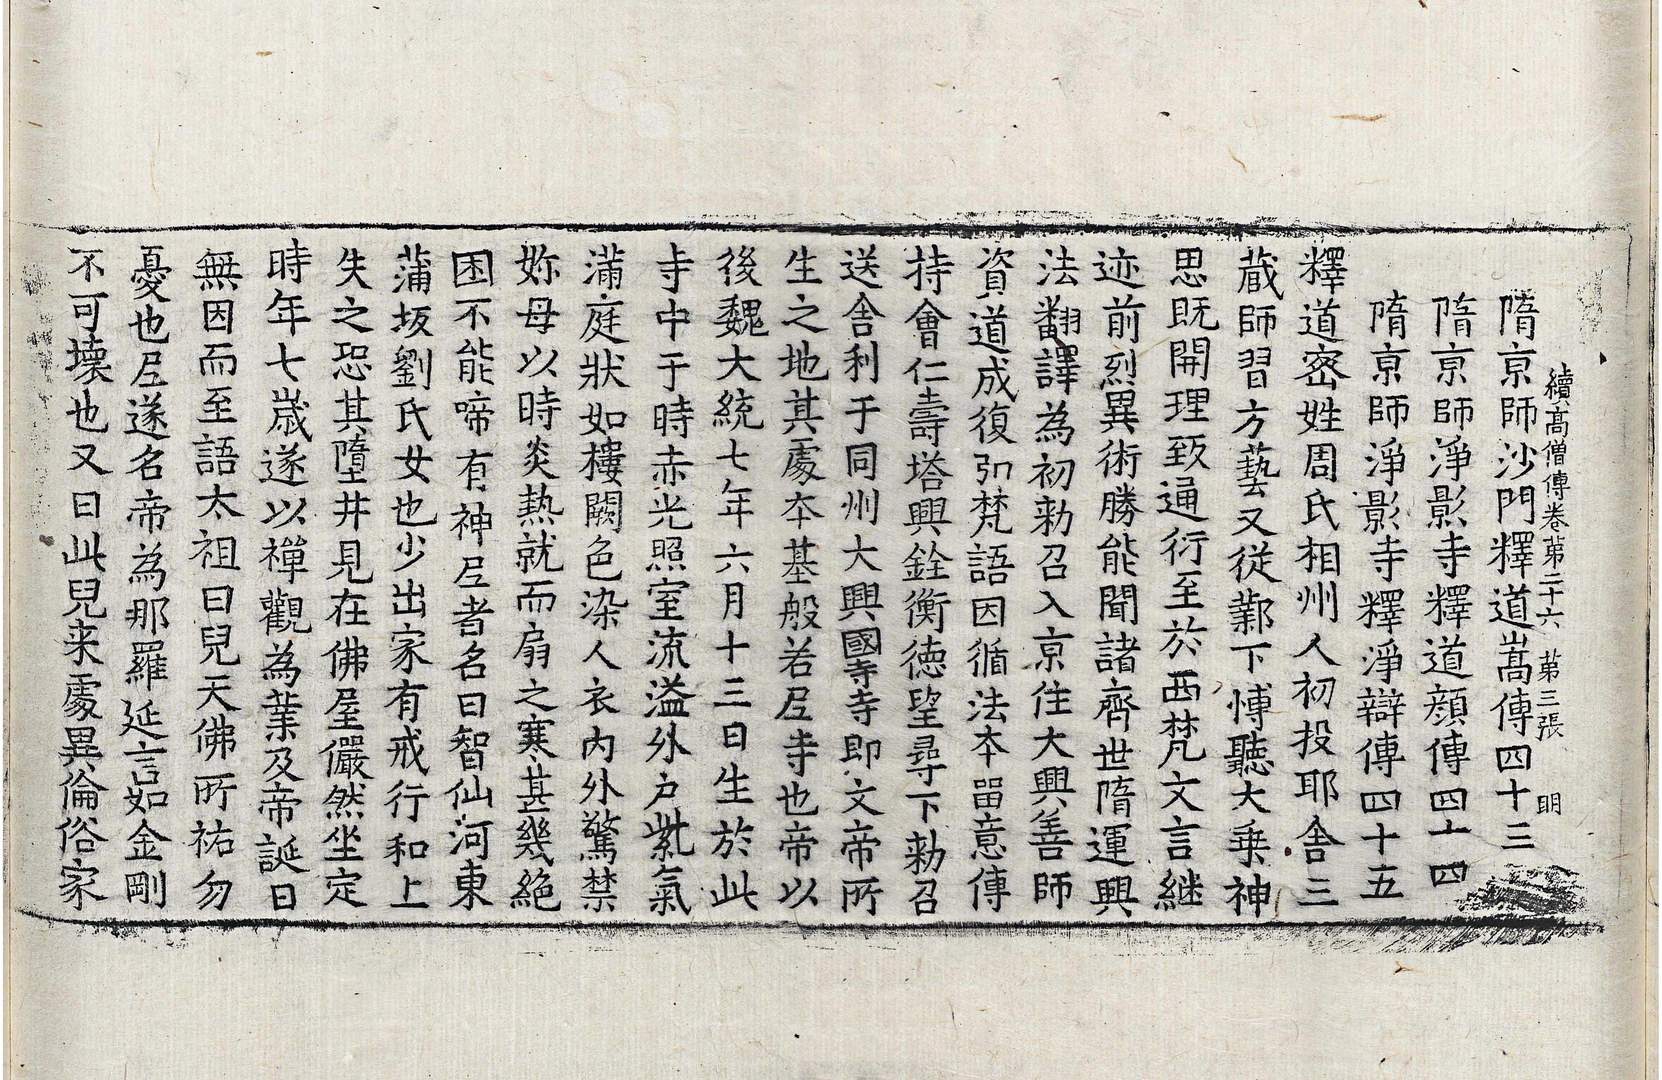 續高僧傳卷第二十六　第三張　明
隋京師沙門釋道嵩傳四十三
隋京師淨影寺釋道顔傳四十四
隋京師淨影寺釋淨辯傳四十五
釋道密姓周氏相州人初投耶舍三
蔵師習方藝又從鄴下愽聽大乗神
思既開理致通衍至於西梵文言継
迹前烈異術勝能聞諸齊世隋運興
法翻譯為初勅召入京住大興善師
資道成復弘梵語因循法本留意傳
持會仁壽塔興銓衡徳望尋下勅召
送舍利于同州大興國寺寺即文帝所
生之地其處本基般若尼寺也帝以
後魏大統七年六月十三日生於此
寺中于時赤光照室流溢外户紫氣
滿庭狀如樓闕色染人衣内外驚禁
妳母以時炎熱就而扇之寒甚幾絶
困不能啼有神尼者名曰智仙河東
蒲坂劉氏女也少出家有戒行和上
失之恐其墮井見在佛屋儼然坐定
時年七歲遂以禪觀為業及帝誕日
無因而至語太祖曰兒天佛所祐勿
憂也尼遂名帝為那羅延言如金剛
不可壊也又曰此兒来處異倫俗家